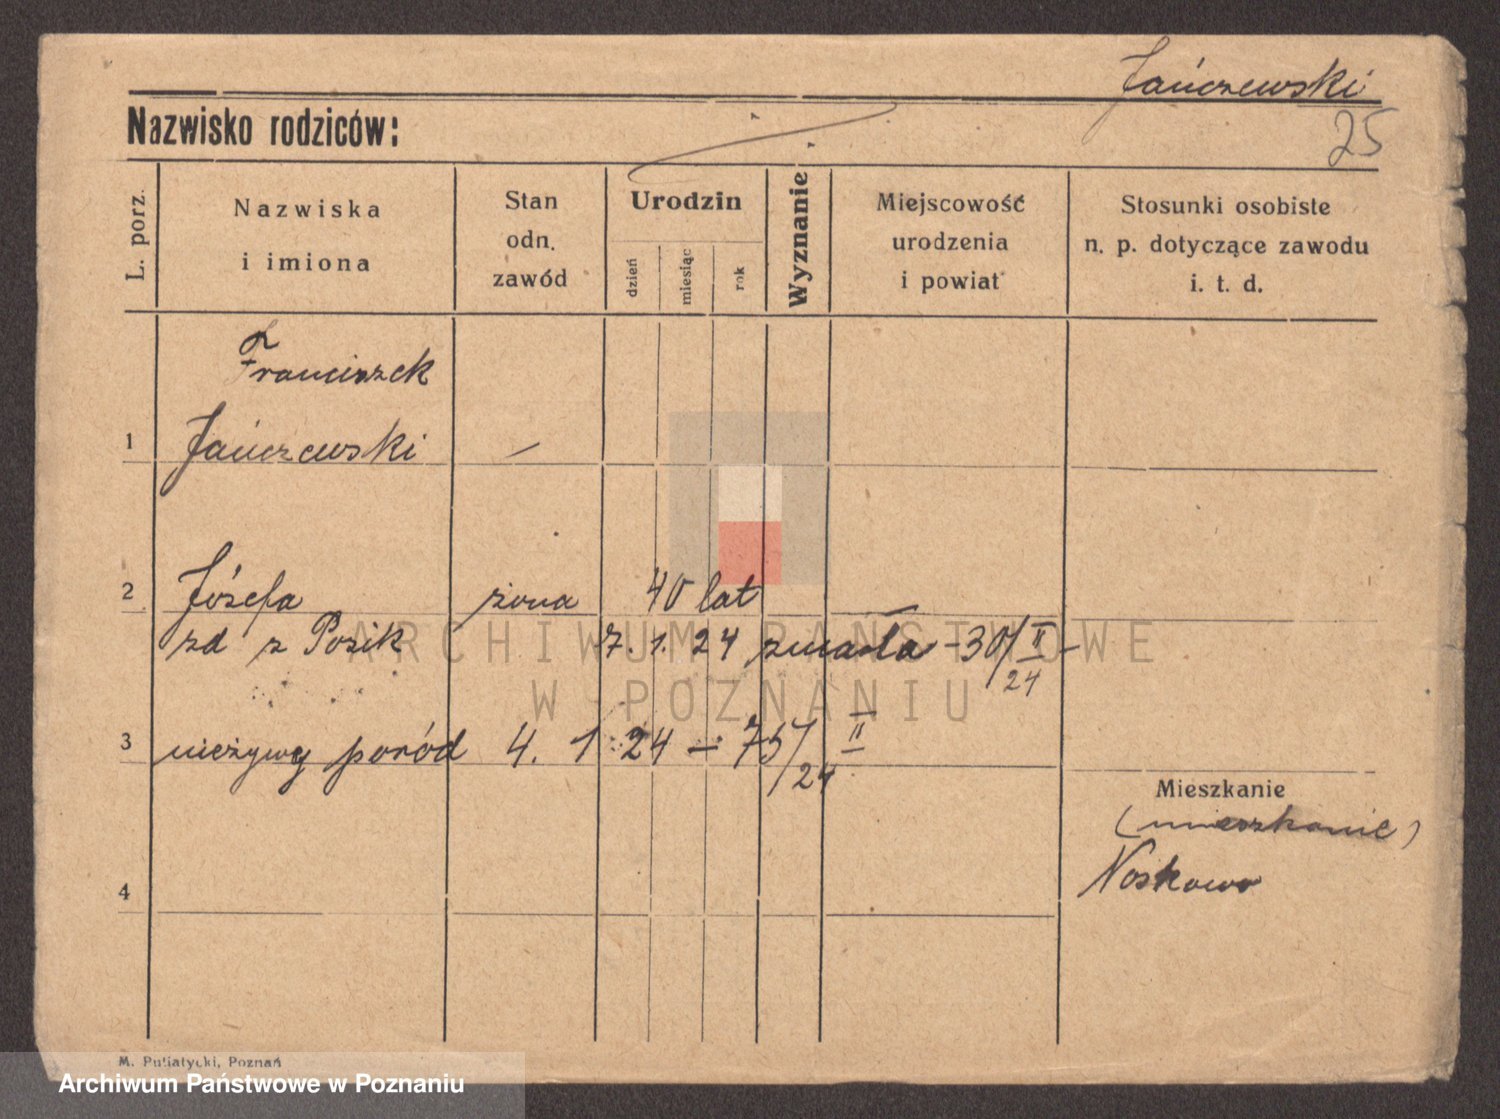 Jańczewski
Nazwisko rodziców:
25
L. porz.
Nazwiska
i imiona
Stan
odn.
zawód
Urodzin
dzień
miesiąc
rok
Wyznanie
Miejscowość
urodzenia
i powiat
Stosunki osobiste
n. p. dotyczące zawodu
i. t. d.
Franciszek
1 Jańczewski –
2 Józefa żona 40 lat
zd z Pozik 7. 1. 24 zmarła – 30/II 24
3 nieżywy poród 4. 1 24 – 75/24 II
Mieszkanie
(mieszkanie)
Noskowo
4
ARCHIWUM PAŃSTWOWE
W POZNANIU
M. Putiatycki, Poznań
Archiwum Państwowe w Poznaniu